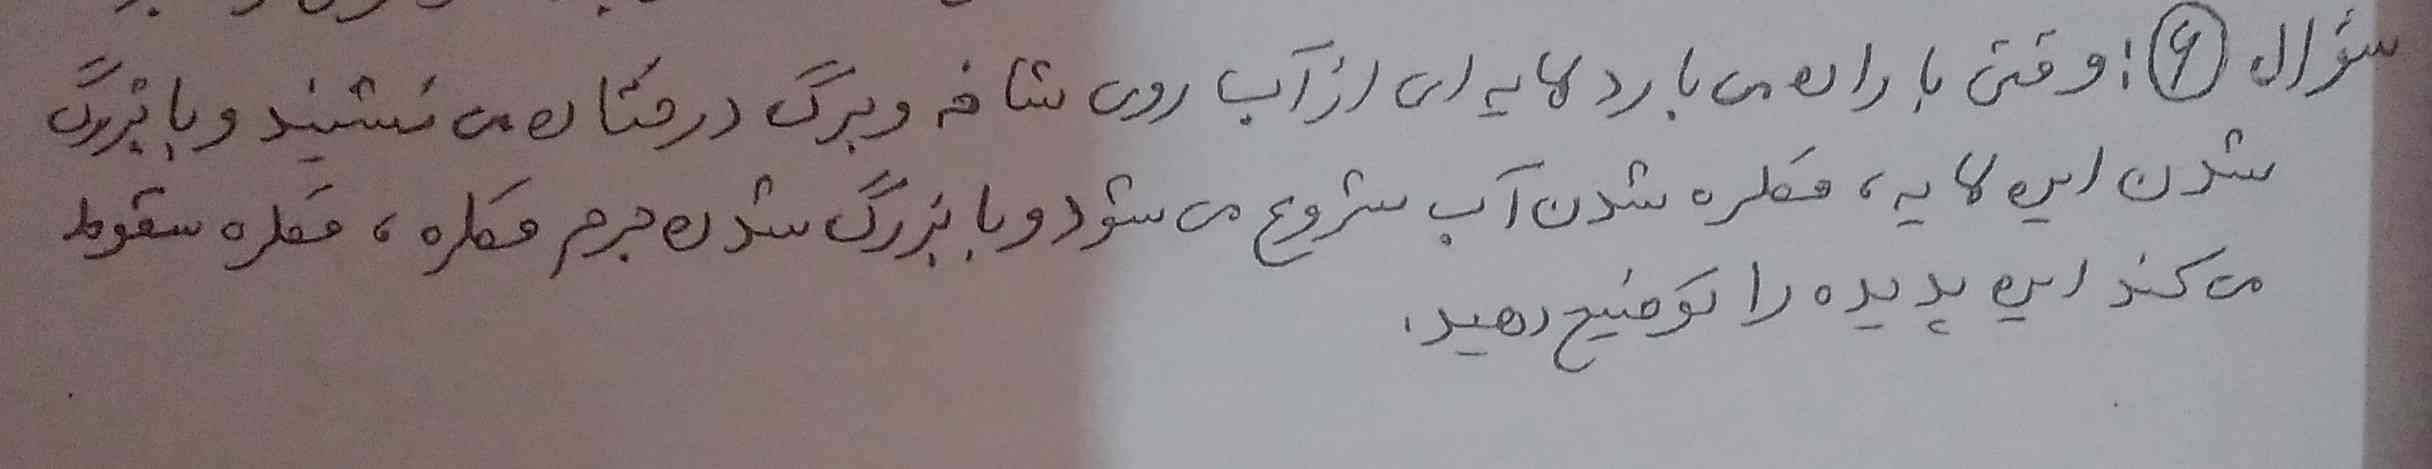 سؤال ۶: وقتی باران می بارد لایه ای از آب روی شاخه و برگ درختان می نشیند و با بزرگ
شدن این لایه، قطره شدن آب شروع می شود و با بزرگ شدن جرم قطره، قطره سقوط
می کند این پدیده را توضیح دهید.